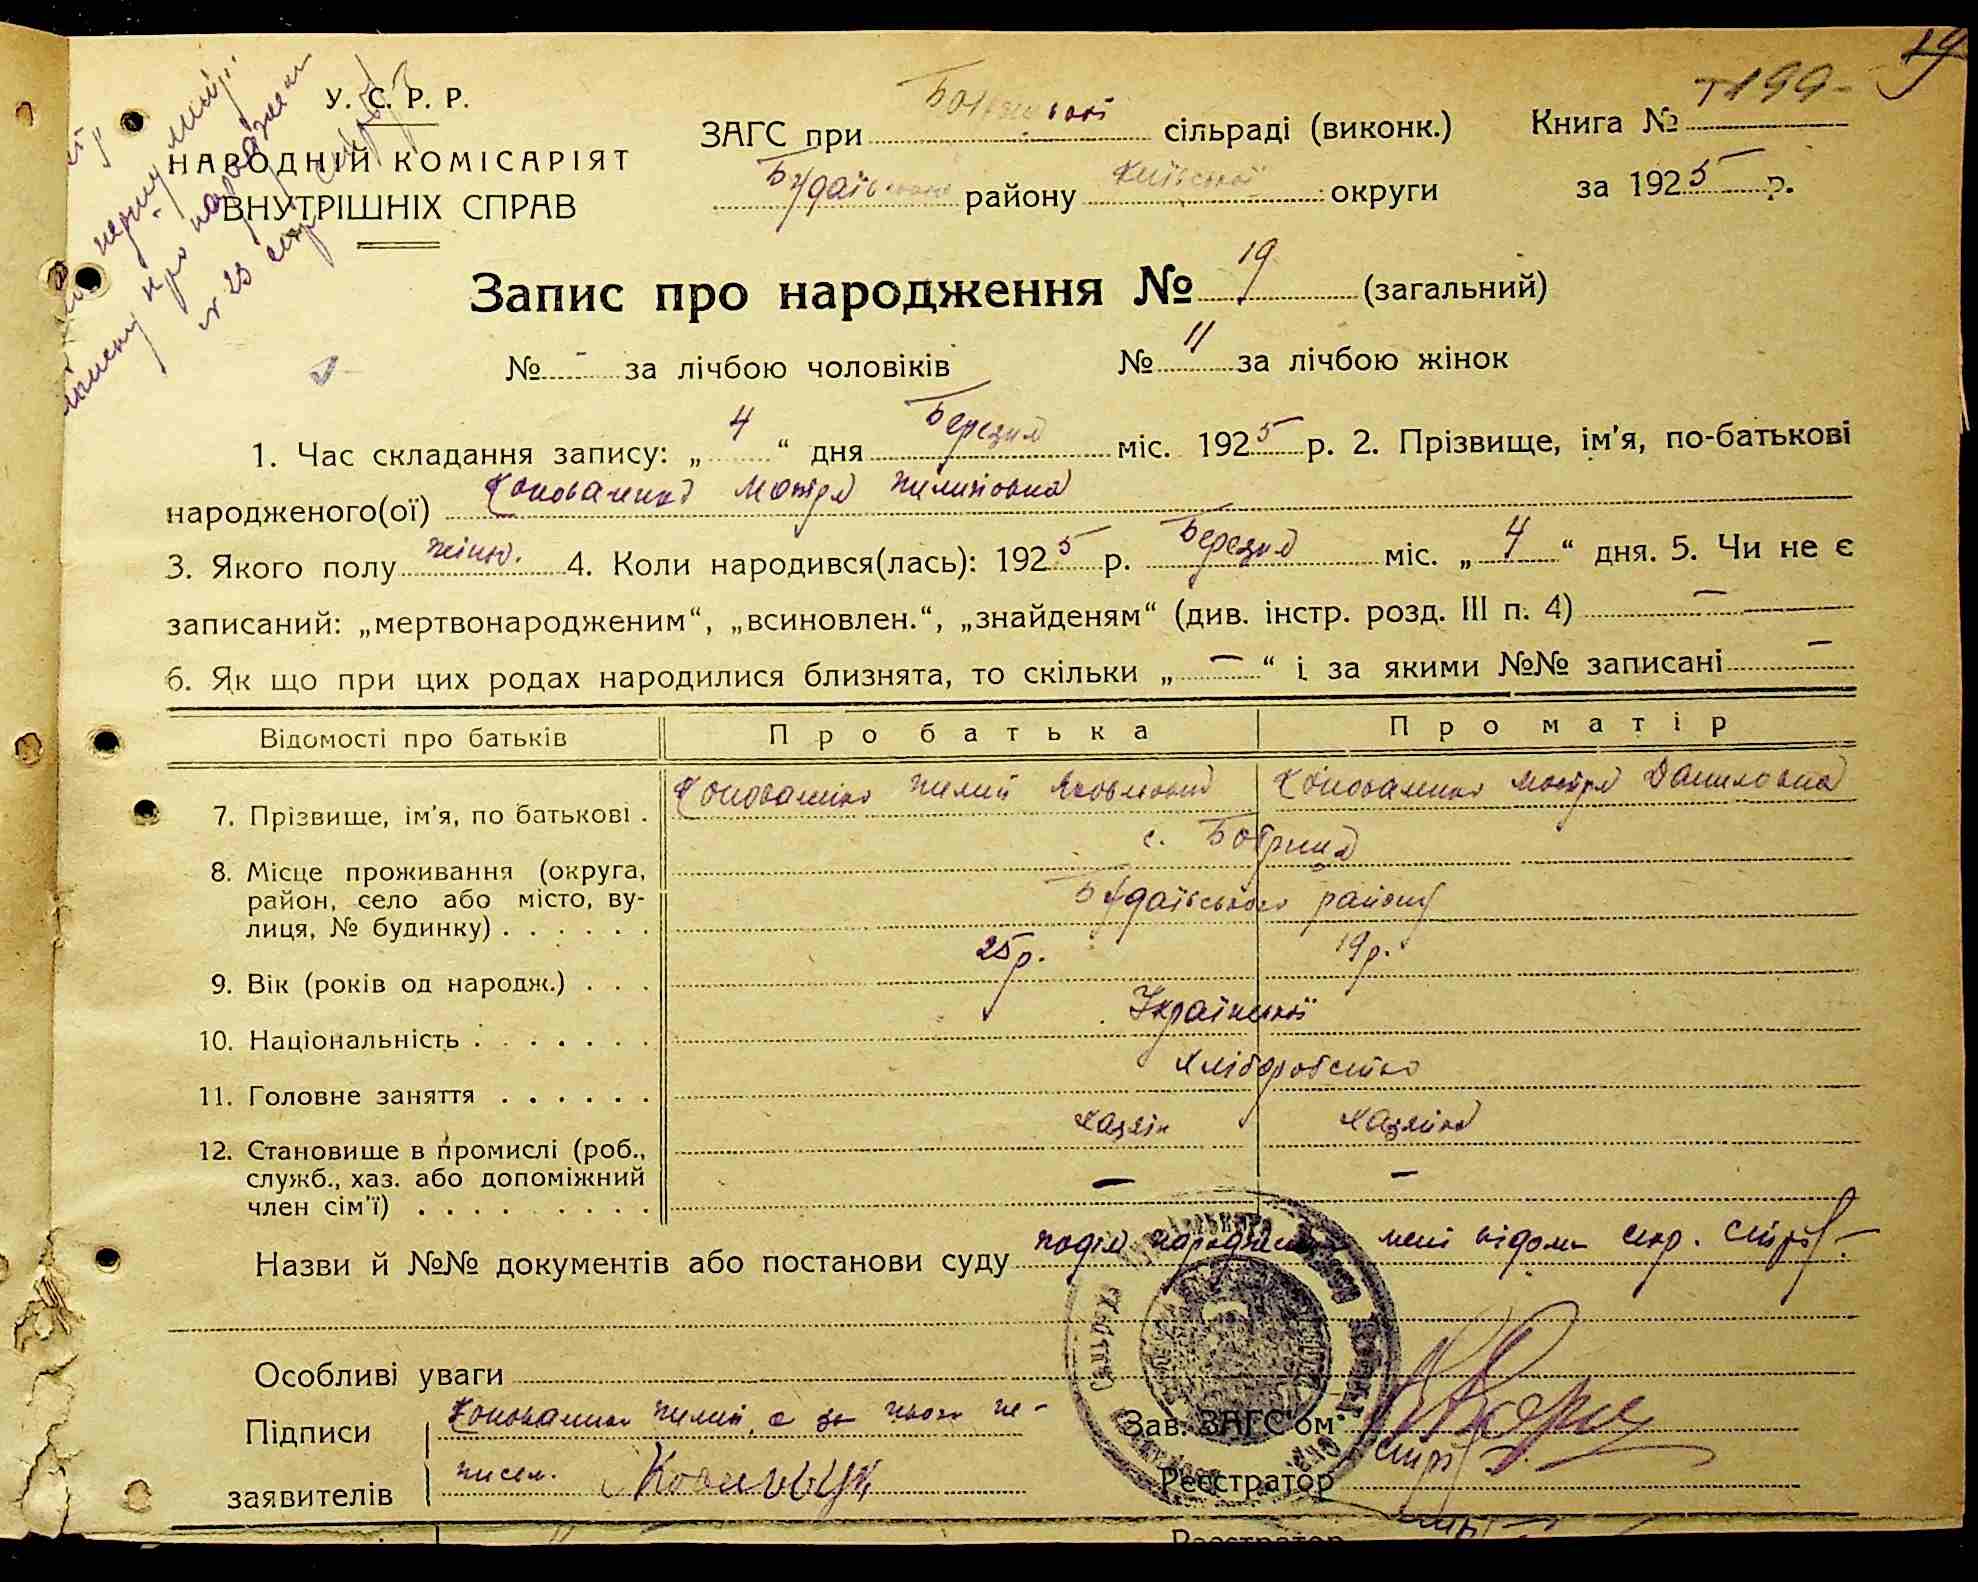 19
У. С. Р. Р.
НАРОДНІЙ КОМІСАРІЯТ
ВНУТРІШНІХ СПРАВ
ЗАГС при сільраді (виконк.) Книга № 199
Будаївського району Київської округи за 1925 р.
Запис про народження № 19 (загальний)
№ - за лічбою чоловіків № 11 за лічбою жінок
1. Час складання запису: „ 4 “ дня Березня міс. 1925 р. 2. Прізвище, ім'я, по-батькові
народженого(ої) Коноваленко Мотря Пилиповна
3. Якого полу жіноч. 4. Коли народився(лась): 1925 р. Березня міс. „ 4 “ дня. 5. Чи не є
записаний: „мертвонародженим“, „всиновлен.“, „знайденям“ (див. інстр. розд. III п. 4) —
6. Як що при цих родах народилися близнята, то скільки „ — “ і за якими №№ записані —
Відомості про батьків Про батька Про матір
7. Прізвище, ім'я, по батькові . Коноваленко Пилип Яковлевич Коноваленко Мотря Даниловна
8. Місце проживання (округа, с. Боярка
район, село або місто, ву-
лиця, № будинку) . . . . . . Будаївського району
9. Вік (років од народж.) . . . 25 р. 19 р.
10. Національність . . . . . . . Українці
11. Головне заняття . . . . . . Хліборобство
12. Становище в промислі (роб., хазяін хазяйка
служб., хаз. або допоміжний
член сім'ї) . . . . . . . . . — —
Назви й №№ документів або постанови суду подія народження мені відома секр.
Особливі уваги
Підписи Коноваленко Пилип, а за його не-
заявителів писем.
Зав. ЗАГС'ом
Реєстратор
Реєстратор